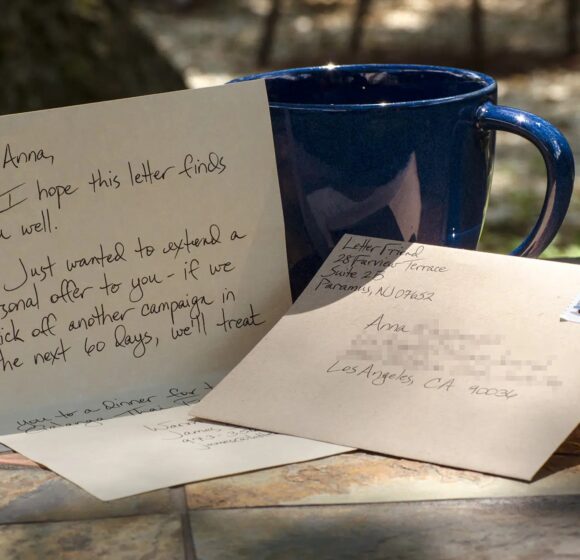 Anna,
I hope this letter finds
well.
Just wanted to extend a
sonal offer to you - if we
ick off another campaign in
he next 60 days, we'll treat
you to a Dinner for
Letter Friend
28 Farview Terrace
Suite 25
Paramus, NJ 07652
Anna
Los Angeles, CA 90036